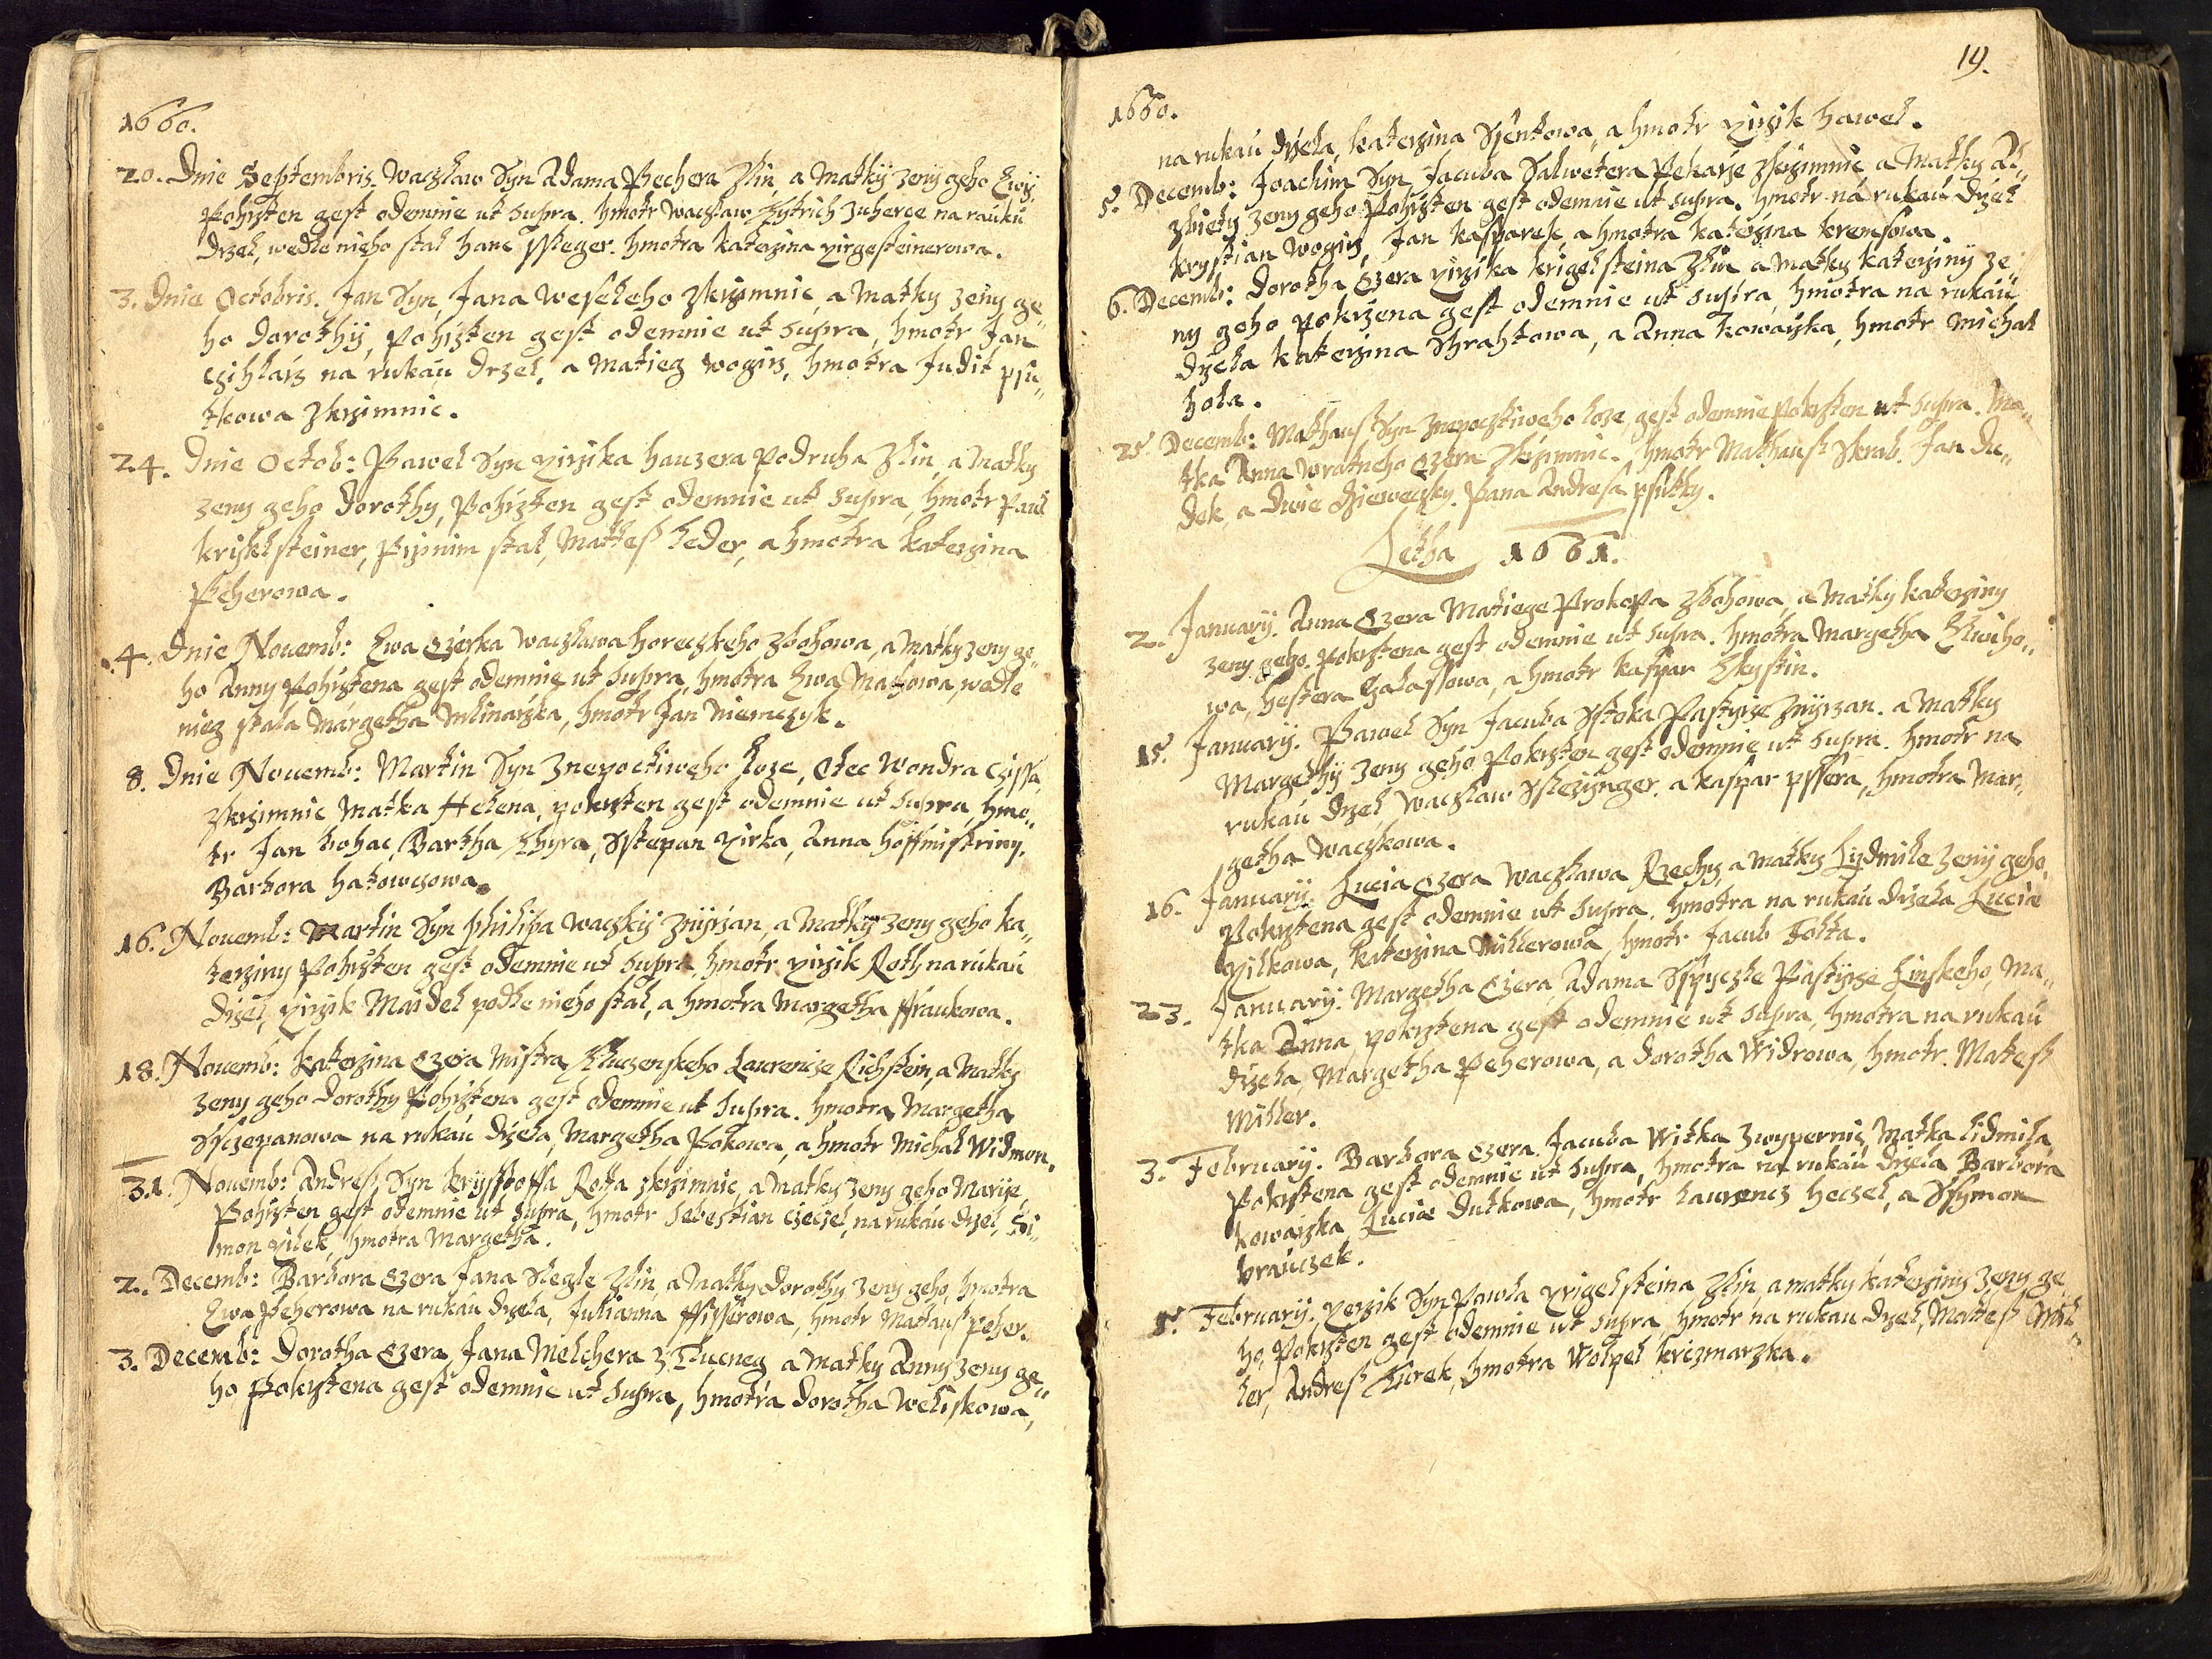 1660.
20. Dnie Septembris. Waczlaw Syn Adama Pechera Zlin, a Matkÿ zenÿ geho Ewÿ
Pohrzten gest odemnie ut supra. hmotr Waczlaw na rukau
drzel, wedle nieho stal hans Fleger. hmotra katerzina yirgesteinerowa.
3. Dnie Octobris. Jan Syn, Jana Weseleho Zkrzimnic, a Matky zeny ge„
ho Dorothÿ, Pohrzten gest odemnie ut supra, hmotr Jan
Czihlarz na rukau Drzel, a Matieg Wogirz, hmotra Judit psu„
tkowa Zkrzimnic.
24. Dnie Octob: Pawel Syn yirzika hauzera Podruha Zlin, a Matky
zeny geho Dorothy, Pohrzten gest odemnie ut supra, hmotr Paul
kriklsteiner, Przinim stal, Matteß Leder, a hmotra Katerzina
Peherowa.
4. Dnie Nouemb: Ewa Czerka Waczlawa horeczkeho Zbohowa, a Matky zeny ge„
ho Anny Pohrztena gest odemnie ut supra, hmotra Ewa Machowa, wedle
nieg stala Margetha Mlinarzka, hmotr Jan Niemczyk.
8. Dnie Nouemb: Martin Syn Znepoctiweho Loze, Otec Wondra Cziffa
Zkrzimnic Matka Helena, pokrzten gest odemnie ut supra, hmo„
tr Jan bohac, Bartha Chyra, Sstepan Yirka, Anna hoffmistriny.
Barbora hatowcowa.
16. Nouemb: Martin Syn philipa Waczkÿ Znÿrzan, a Matky zeny geho ka„
terziny Pohrzten gest odemnie ut supra, hmotr yirzik Roth na rukau
drzel, yirzik Maidel podle nieho stal, a hmotra Margetha ffraukowa.
18. Nouemb: katerzina Czera Mistra Laurencze Richstein, a Matky
zeny geho Dorothy Pohrztena gest odemnie ut supra. hmotra Margetha
Ssczepanowa na rukau drzela, Margetha Pokowa, a hmotr Michal Widmon.
31. Nouemb: Andreß Syn krÿsstoffa Rotha Zkrzimnic, a Matky zeny geho Marÿe,
Pohrzten gest odemnie ut supra, hmotr Sebestian Czeczel, na rukau drzel, Si„
mon yilek, hmotra Margetha.
2. Decemb: Barbora Czera Jana Slegle Zlin, a Matky Dorothy zeny geho, hmotra
Ewa Peherowa na rukau drzela, Julianna ffisserowa, hmotr Matauß Peher.
3. Decemb: Dorotha Czera, Jana Melchera z Tlucneg, a Matky Anny zeny ge„
ho Pokrztena gest odemnie ut supra, hmotra Dorotha Weliskowa,
19.
1660.
na rukau drzela, katerzina Sjentowa, a hmotr yirzik hawel.
5. Decemb: Joachim Syn Jacuba Salwetera Pekarze Zkrzimnic, a Matky Al„
zbiety zeny geho Pohrzten gest odemnie ut supra. hmotr na rukau drzel
krystian Wogirz, Jan kasparek, a hmotra katerzina kremsowa.
6. Decemb: Dorotha Czera yirzika krigelsteina Zlin a Matky katerziny ze„
ny geho pokrzena gest odemnie ut supra, hmotra na rukau
drzela katerzina Schrahtowa, a Anna kowarzka, hmotr Michal
hola.
25. Decemb: Mathauß Syn Znepocztiweho Loze, gest odemnie Pokrzten ut supra. Ma„
tka Anna Wratneho Czera Zkrzimnic. hmotr Mathauß Skrab. Jan Du„
dek, a Dwie dziewecky. Pana Andresa psutky.
Letha 1661.
2. January. Anna Czera Matiege Prokopa Zbohowa, a Matky katerziny
zeny geho. Pokrztena gest odemnie ut supra. hmotra Margetha Chwiho„
wa, hestera Galassowa, a hmotr kaspar Chrystin.
15. Januarÿ. Pawel Syn Jacuba Sstoka Pastyrze Znÿrzan. a Matky
Margethÿ zeny geho Pokrzten gest odemnie ut supra. hmotr na
rukau drzel, Waczlaw Sslezÿnger. a kaspar pssera, hmotra Mar„
getha Waczkowa.
16. Januarÿ. Lucia Czera Waczlawa Rzechy, a Matky Lydmile zenÿ geho.
Pokrztena gest odemnie ut supra. hmotra na rukau drzela Lucia
Yilkowa, katerzina Millerowa, hmotr Jacub Folta.
23. Januarÿ. Margetha Czera, Adama Sspyczle Pastÿrze Linskeho, Ma„
tka Anna pokrztena gest odemnie ut supra, hmotra na rukau
drzela, Margetha Peherowa, a Dorotha Widrowa, hmotr. Mateß
Miller.
3. Februarÿ. Barbora Czera. Jacuba Witka Zwypernitz, Matka lidmila
Pokrztena gest odemnie ut supra, hmotra na rukau drzela Barbora
kowarzka, Lucia Dutkowa, hmotr Laurencz heczel, a Sszymon
krauczek.
5. Februarÿ. Yerzik Syn Pawla yrigelsteina Zlin, a matky katerziny zeny ge„
ho, Pokrzten gest odemnie ut supra, hmotr na rukau drzel, Matteß Mil„
ler, Andreß Kurek, hmotra Wolpel krizmarzka.